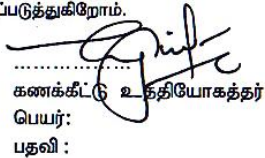 ப்படுத்துகிறோம்.
....................
கணக்கீட்டு உத்தியோகத்தர்
பெயர்:
பதவி :